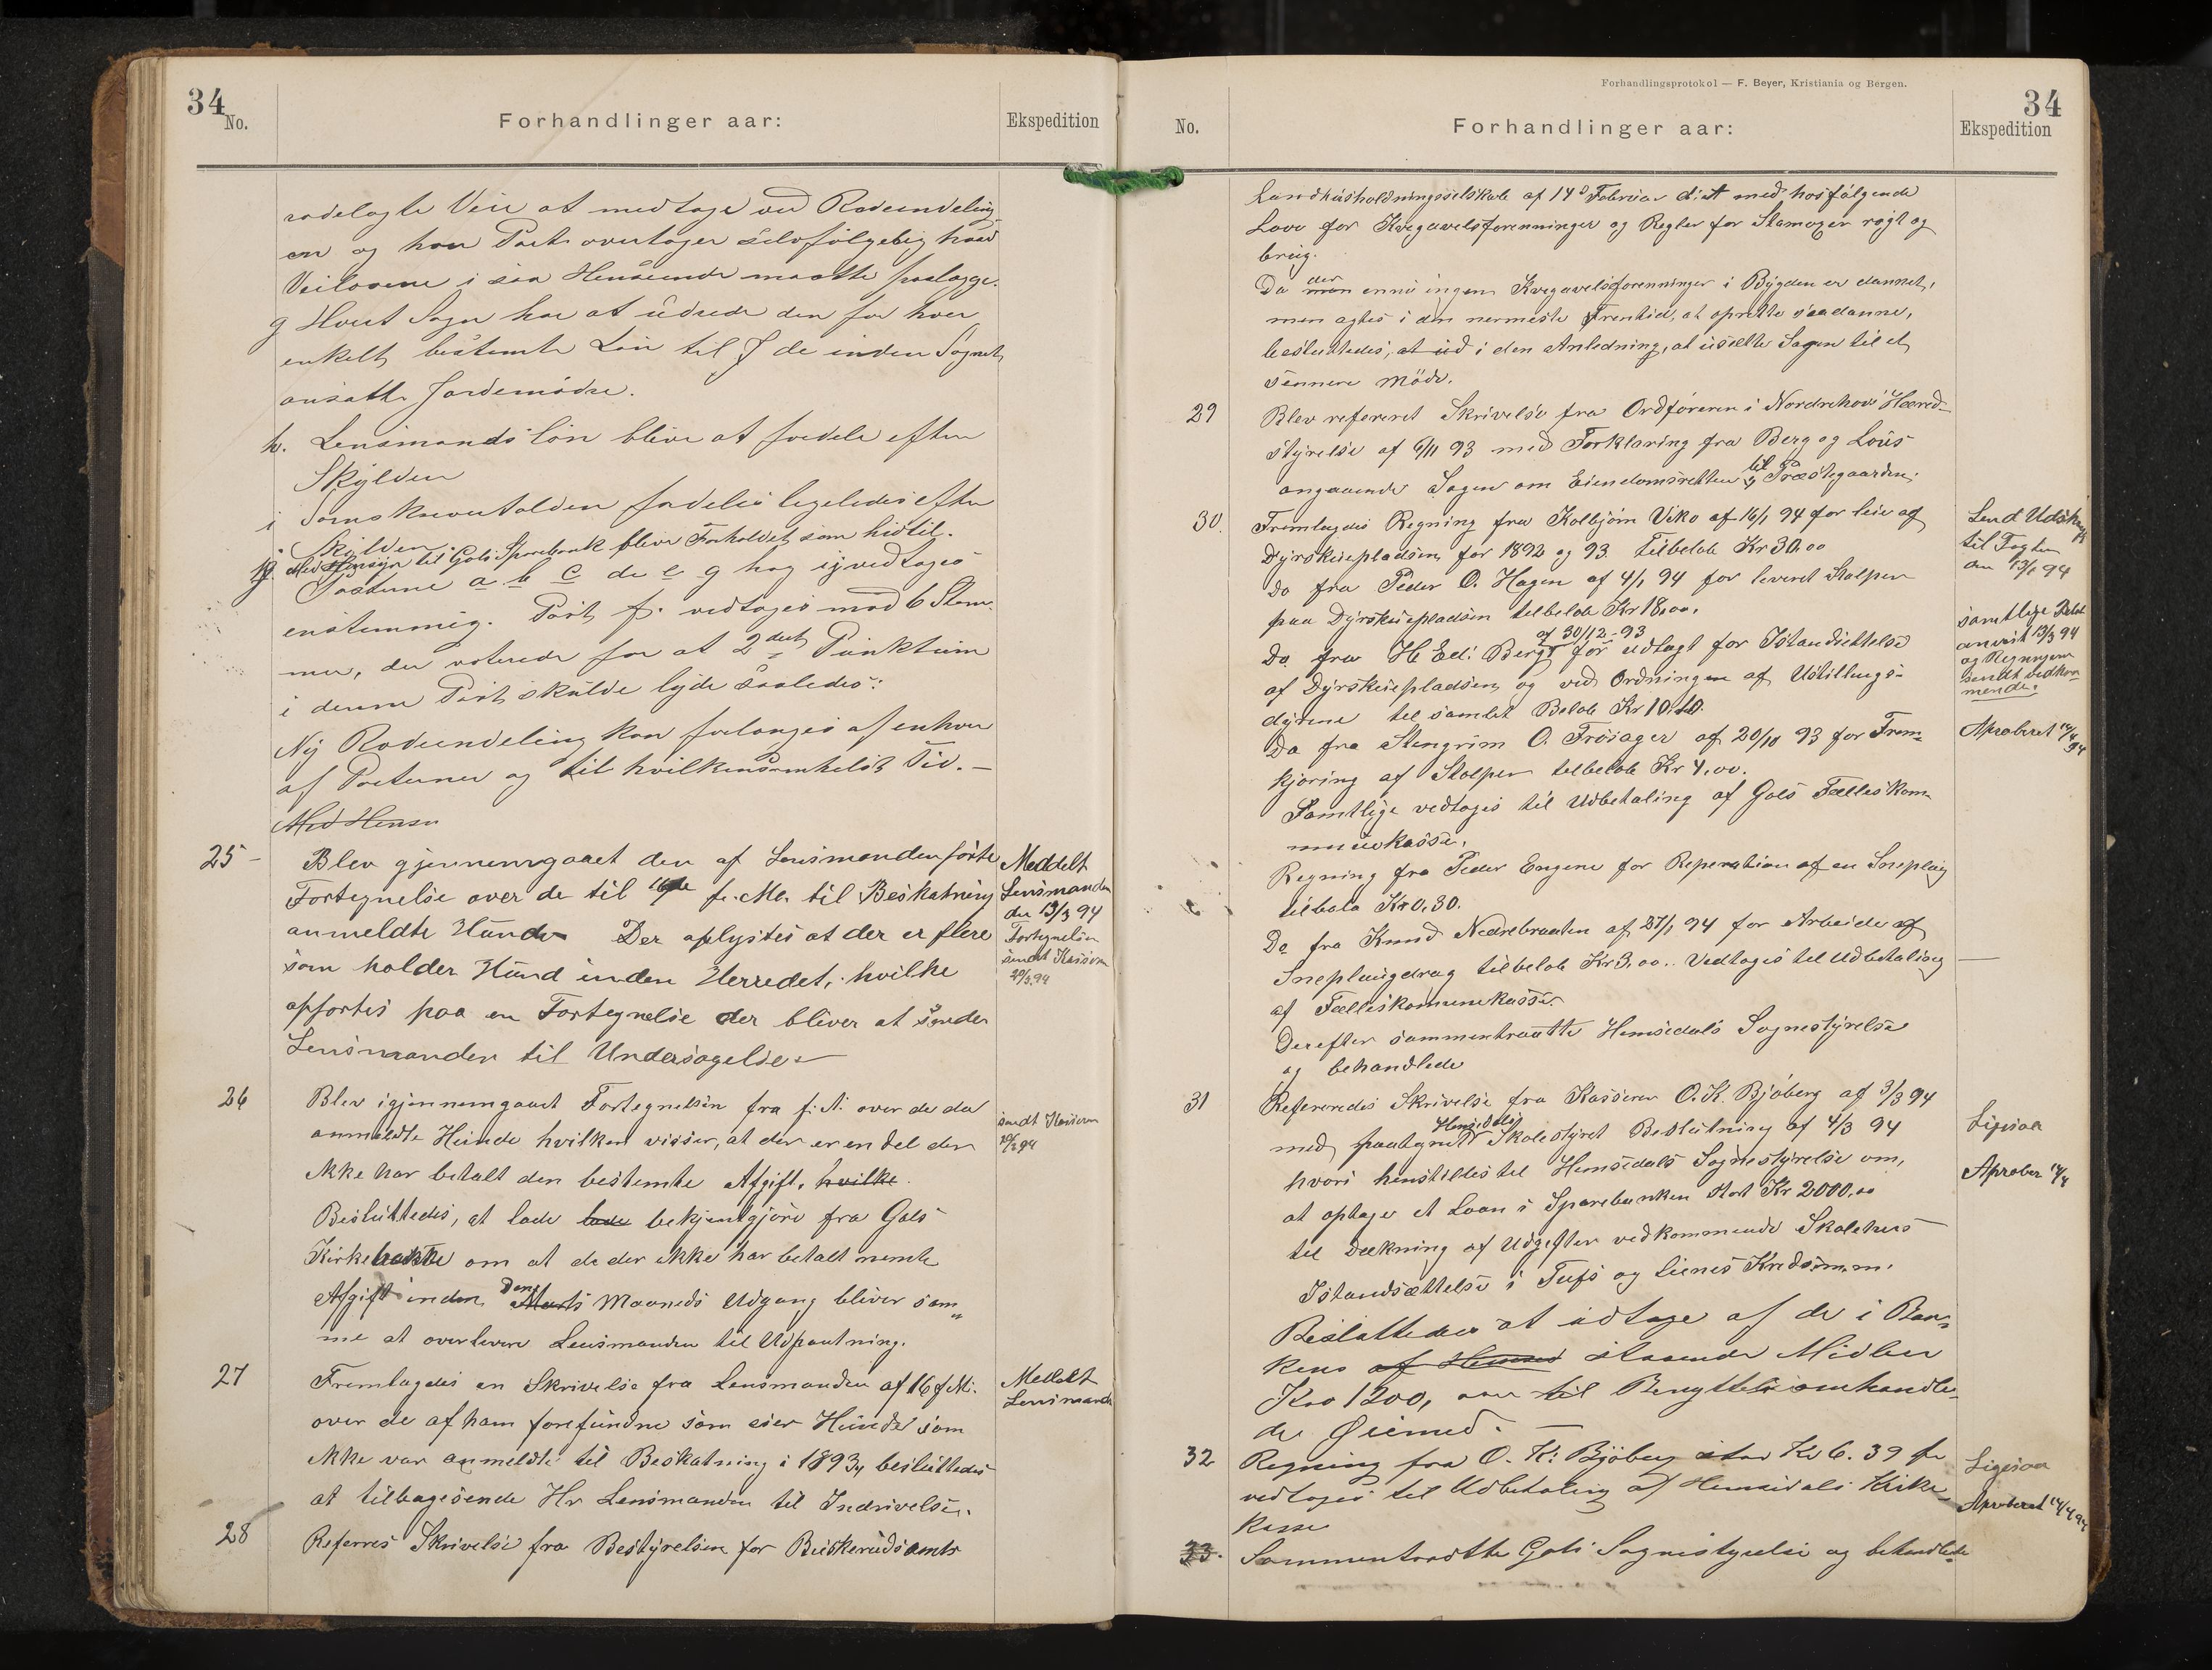 34
No.
Forhandlinger aar:
Ekspedition
rodelagte Veie at medtage ved Rodeindeling-
en og hver Part overtager selvfølgelig hvad
Veilovene i saa Henseende maatte paalægge.
g Hvert Sogn har at udrede den for hver
enkelt bestemte Løn til de inden Sognet
ansatte Jordemødre.
h. Lensmandsløn blive at fordele efter
Skylden
i Tomsknevertolden fordeles ligeledes efter
Skylden.
Med Hensyn til Gols Sparebank bliver Forholdet som hidtil.
Posterne a b c d e g h og i vedtages
enstemmig. Post f. vedtages mod 6 Stem-
mer, der voterede for at 2det Punktum
i denne Post skulde lyde saaledes:
Ny Rodeindeling kan forlanges af enhver
af Parterne og til hvilkensomhelst Tid. —
Med Hensn
25 -
Blev gjennemgaaet den af Lensmanden førte
Fortegnelse over de til f. M. til Beskatning
anmeldte Hunde Der oplystes at der er flere
som holder Hund inden Herredet, hvilke
opførtes paa en Fortegnelse der bliver at sende
Lensmanden til Undersøgelse.
Meddelt
Lensmanden
den 13/3 94
Fortegnelsen
sendt Kasseren
29/3 94
26
Blev igjennemgaaet Fortegnelsen fra f. A. over de da
anmeldte Hunde hvilken visser, at der er en del der
ikke har betalt den bestemte Afgift. hvilke
Besluttedes, at lade lade bekjentgjøre fra Gols
Kirkebakke om at de der ikke har betalt nevnte
Afgift inden Denne Marts Maaneds Udgang bliver sam-
me at overlevere Lensmanden til Udpantning.
sendt Kasseren
29/3 94
27
Fremlagdes en Skrivelse fra Lensmanden af 16 f. M.
over de af ham forefundne som eier Hunde som
ikke var anmeldte til Beskatning i 1893, besluttedes
at tilbagesende Hr Lensmanden til Indrivelse.
Meddelt
Lensmanden
28
Referres Skrivelse fra Bestyrelsen for Buskeruds amts
Forhandlingsprotokol — F. Beyer, Kristiania og Bergen.
34
No.
Forhandlinger aar:
Ekspedition
Landhusholdningsselskab af 14de Februar d. A med hosfølgende
Love for Kvegavelsforenninger og Regler for Stamoxer røgt og
brug.
Da der man ennu ingen Kvegavelsforenninger i Bygden er dannet,
men agtes i den nermeste Fremtid, at oprette saadanne,
besluttedes, at ud i den Anledning, at usette Sagen til et
sennere Møde.
29
Blev refereret Skrivelse fra Ordføreren i Nordrehovs Hered-
styrelse af 6/11 93 med Forklaring fra Berg og Lous
angaaende Sagen om Eiendomsretten til Præstegaarden.
30.
Fremlagdes Regning fra Kolbjørn Viko af 16/1 94 for leie af
Dyrskuepladsen for 1892 og 93. tilbeløb Kr 30,00
Do fra Peder O. Hagen af 4/1 94 for leveret Stolper
paa Dyrskuepladsen tilbeløb Kr 18,00.
Do fra H. Ed. Berg af 30/12-93 for udlagt for Istandsettelse
af Dyrskuepladsen og ved Ordningen af Ustillings-
dyrene til samlet Beløb Kr 10.10.
Do fra Stengrim O. Trøsager af 20/10 93 for Frem-
kjøring af Stolper tilbeløb Kr 4,00.
Samtlige vedtages til Udbetaling af Gols Fælleskom-
munekasse.
Regning fra Peder Engene for Reperation af en Sneplaug
tilbeløb Kr 0,30.
Do fra Knud Nedrebraaten af 27/1 94 for Arbeide af
Sneplaugdrag tilbeløb Kr 3,00. Vedtages til Udbetaling
af Fælleskomunekasse.
Derefter sammentraatte Hemsedals Sognestyrelse
og behandlede
Send Udskrift
til Fogden
den 13/3 94
samtlige Beløb
anvist 13/3 94
og Regningene
sendt vedkom-
mende.
Aproberet 14/4 94
31
Refereredes Skrivelse fra Kasserer O. K. Bjøberg af 3/3 94
med paategnet Hemsedals Skolestyret Beslutning af 4/3 94
hvori henstilles til Hemsedals Sognestyrelse om,
at optage et Laan i Sparebanken stort Kr 2000,00
til Dækning af Udgifter vedkommende Skolehus
Istandsættelse i Tufs og Lienes Kreds m.m.
Besluttedes at udtage af de i Ban-
kens af Hemsed staaende Midler
Kro 1200, oo til Benyttelse omhandle-
de Øiemed. —
Ligesaa
Aprober 14/4
32
Regning fra O. K. Bjøberg stor Kr 6.39 
vedtages til Udbetaling af Hemsedals Kirke-
kasse
Ligesaa
Aproberet 14/4 94
33.
Sammentraadte Gols Sognestyrelse og behandlede